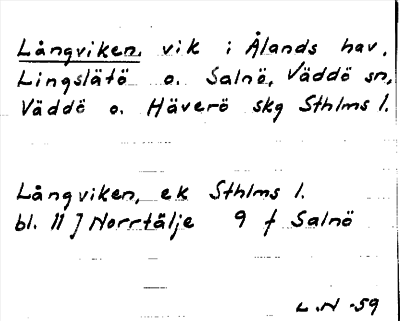 Långviken, vik i Ålands hav,
Lingslätö o. Salnö, Väddö sn,
Väddö o. Häverö skg Sthlms l.
Långviken, ek Sthlms l.
bl. 11 J Norrtälje 9 f Salnö
L.N -59